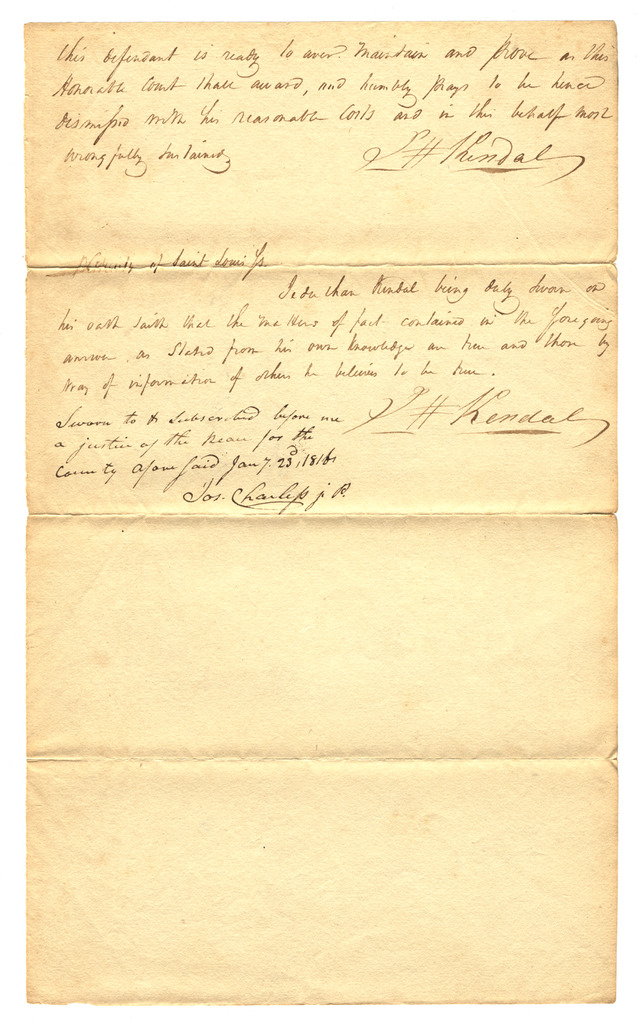 this defendant is ready to aver. maintain and prove as this
Honorable Court shall award, and humbly prays to be hence
dismissed with his reasonable Costs and in this behalf most
wrongfully sustained
J H Kendal
County of Saint Louis Ss.
Jeduthan Kendal being duly sworn on
his oath saith that the matters of fact contained in the foregoing
answer as stated from his own knowledge are true and those by
way of information of others he believes to be true.
Sworn to & Subscribed before me
J H Kendal
a justice of the peace for the
county aforesaid Jany. 23d, 1816
Jos. Charless j. P.